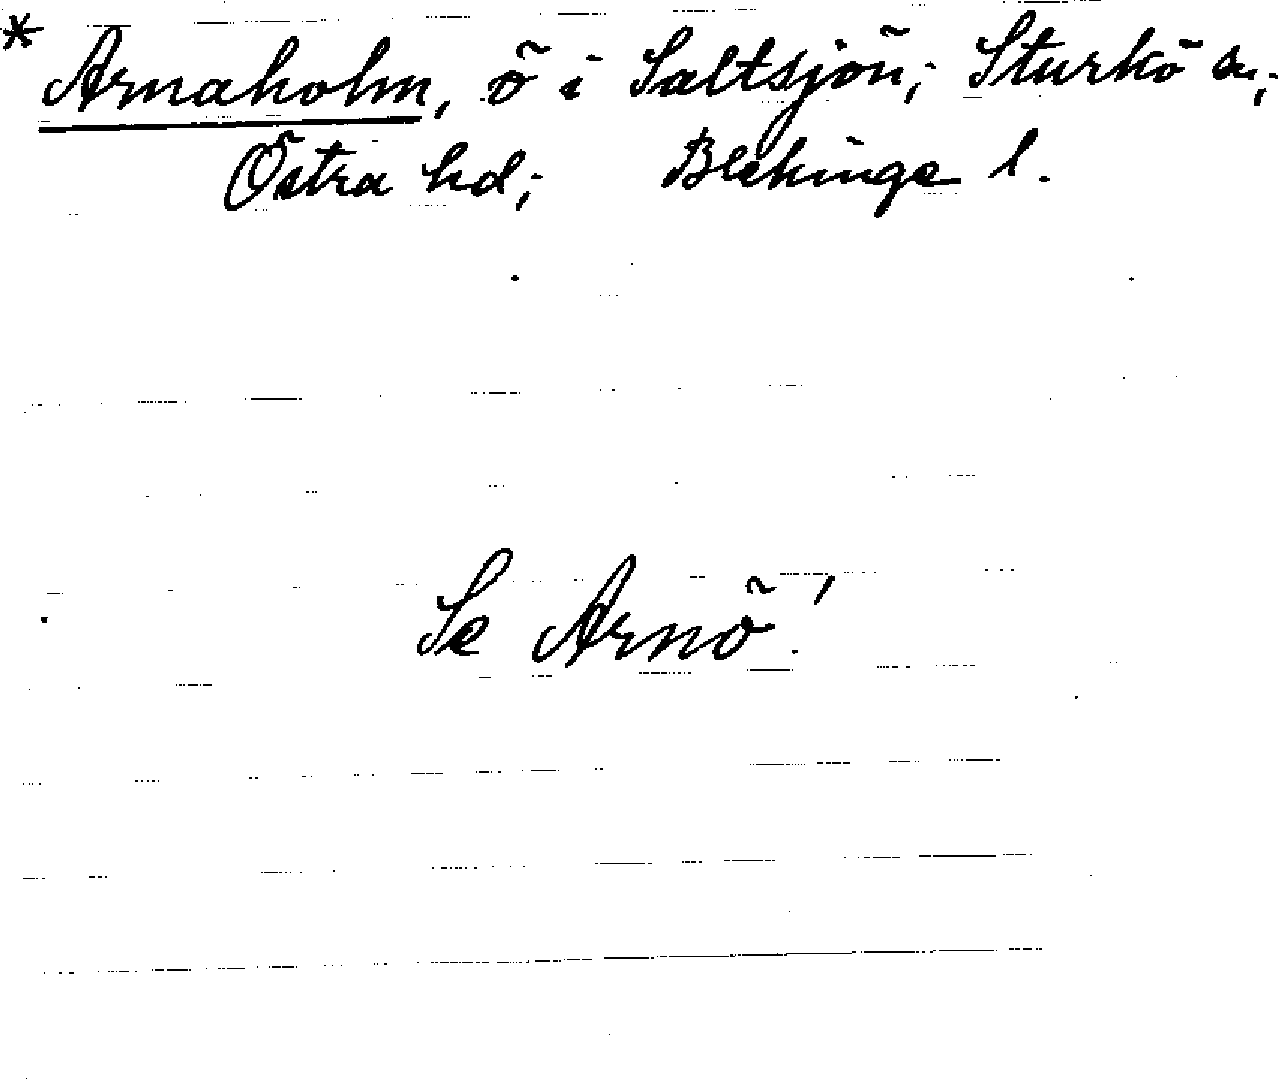 * Arnaholm, ö i Saltsjön; Sturkö sn;
Östra hd; Blekinge l.
Se Arnö!